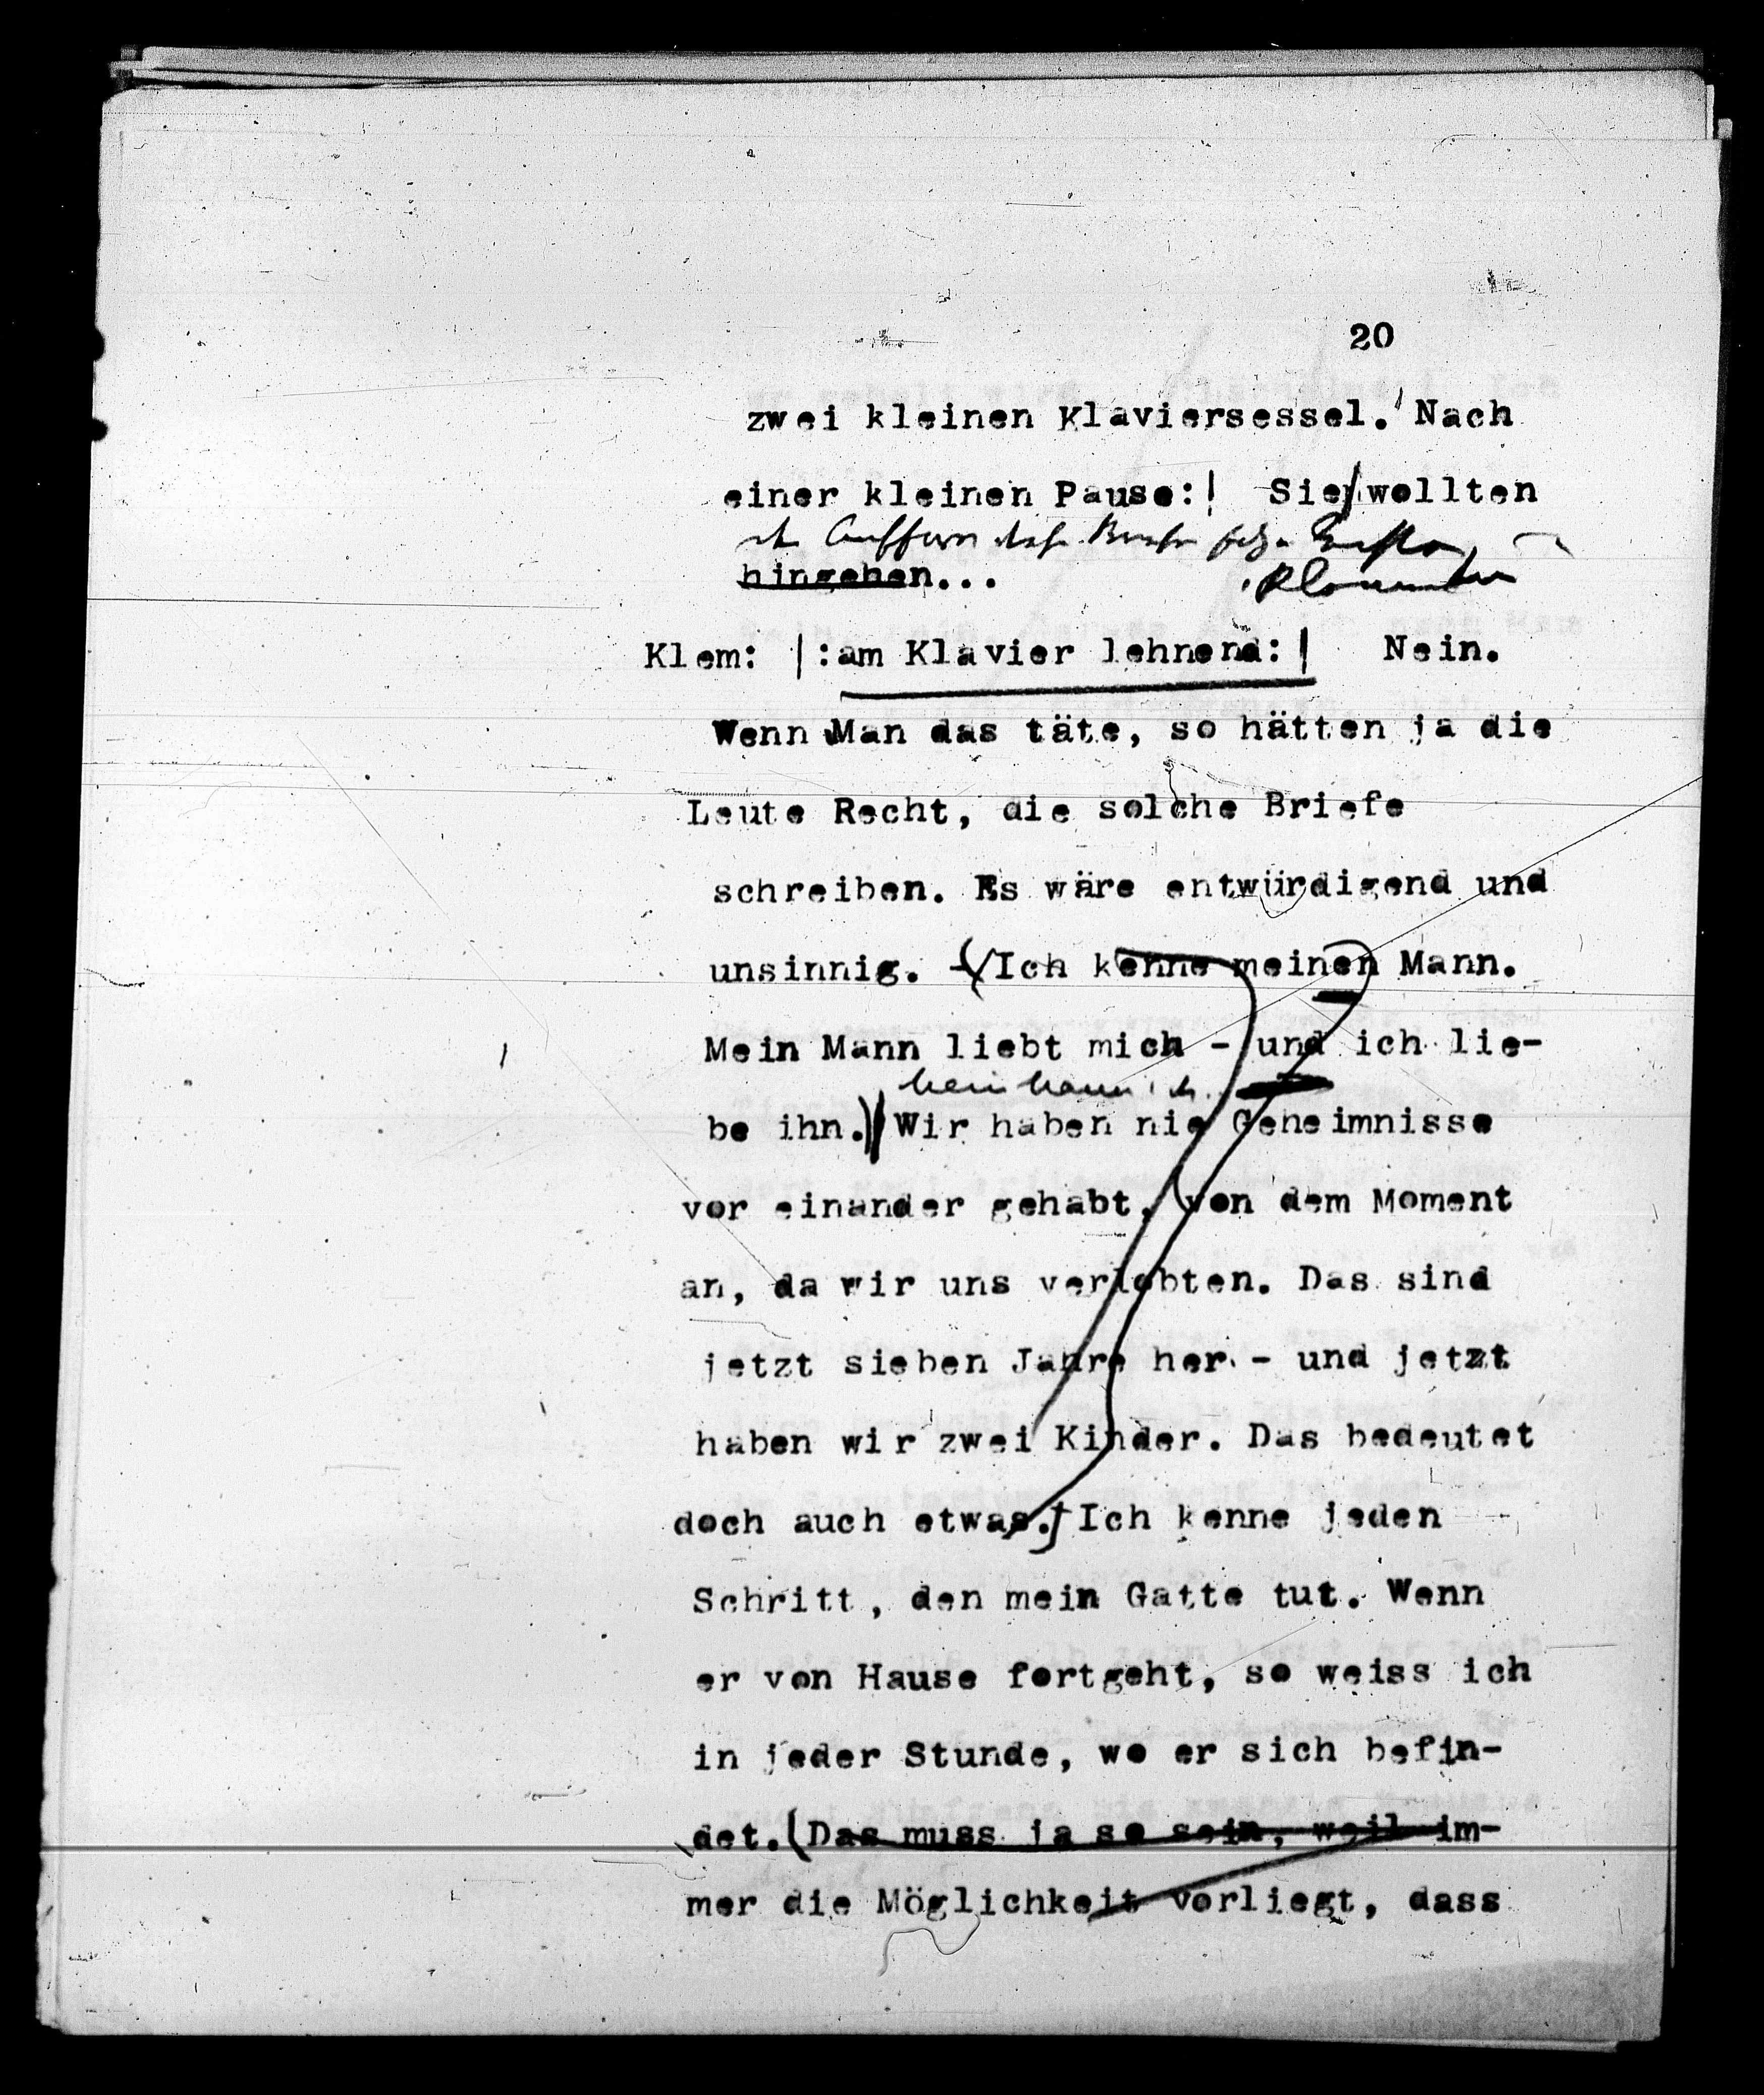 20
zwei kleinen Klaviersessel. Nach
einer kleinen Pause:| Sie wollten
hingehen...
Klem: |:am Klavier lehnend:| Nein.
Wenn Man das täte, so hätten ja die
Leute Recht, die solche Briefe
schreiben. Es wäre entwürdigend und
unsinnig. - (Ich kenne meinen Mann.
Mein Mann liebt mich - und ich lie-
mein Mann
be ihn.) Wir haben nie Geheimnisse
vor einander gehabt, von dem Moment
an, da wir uns verlobten. Das sind
jetzt sieben Jahre her - und jetzt
haben wir zwei Kinder. Das bedeutet
doch auch etwas.) Ich kenne jeden
Schritt, den mein Gatte tut. Wenn
er von Hause fortgeht, so weiss ich
in jeder Stunde, wo er sich befin-
det. (Das muss ja so sein, weil im-
mer die Möglichkeit vorliegt, dass